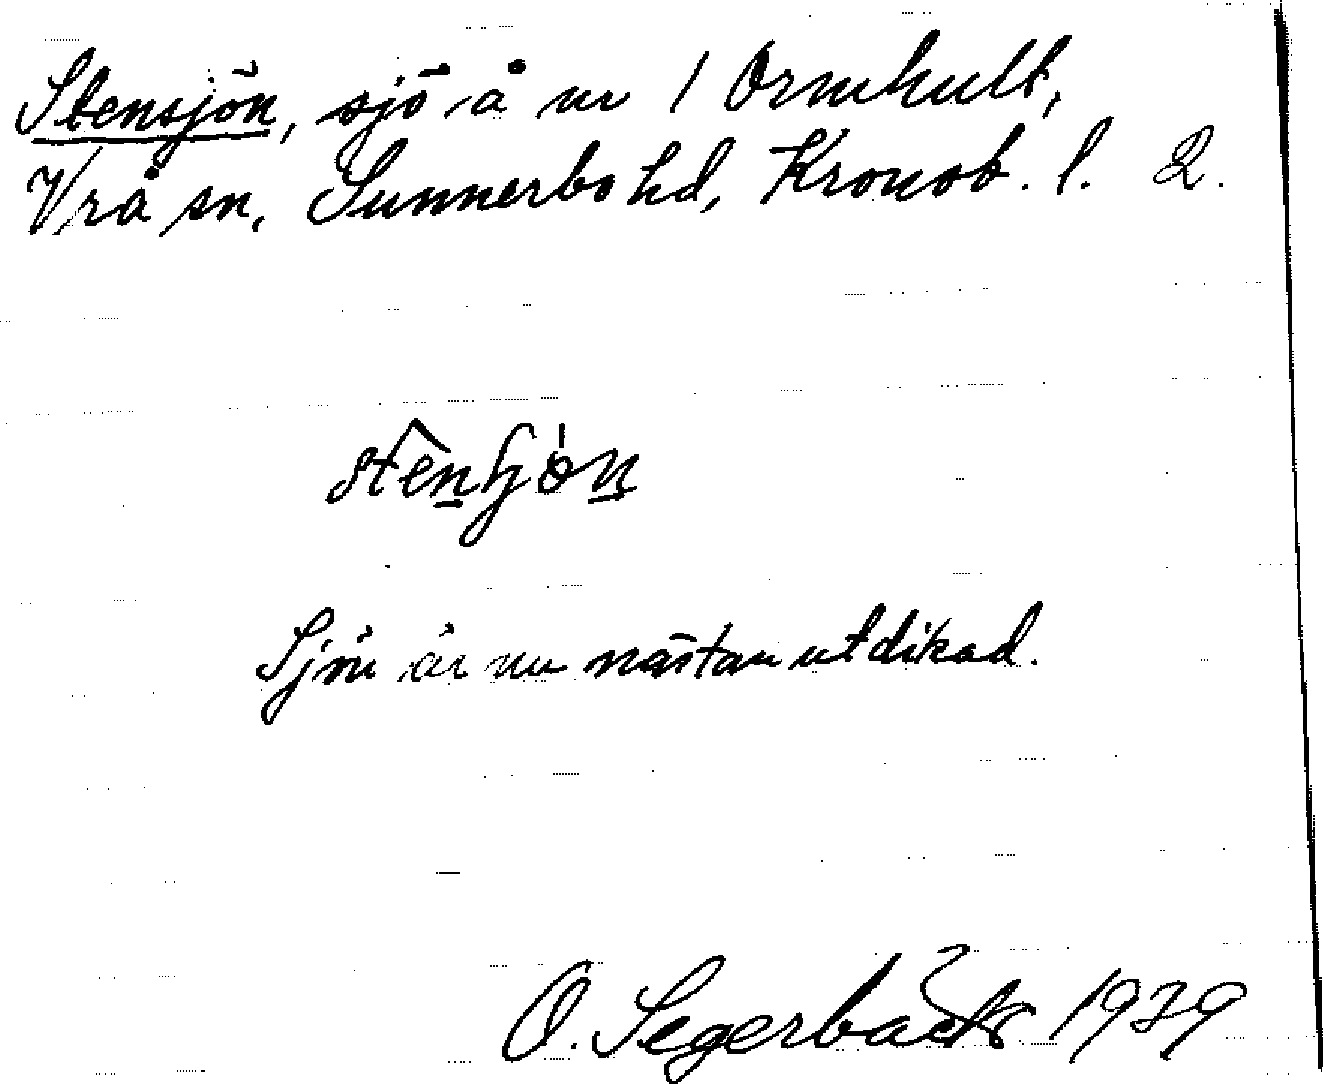 Stensjön, sjö å nr 1 Ormhult,
Vrå sn, Sunnerbo hd, Kronob. l. 2.
Sjön är nu nästan utdikad.
O. Segerbäck 1939